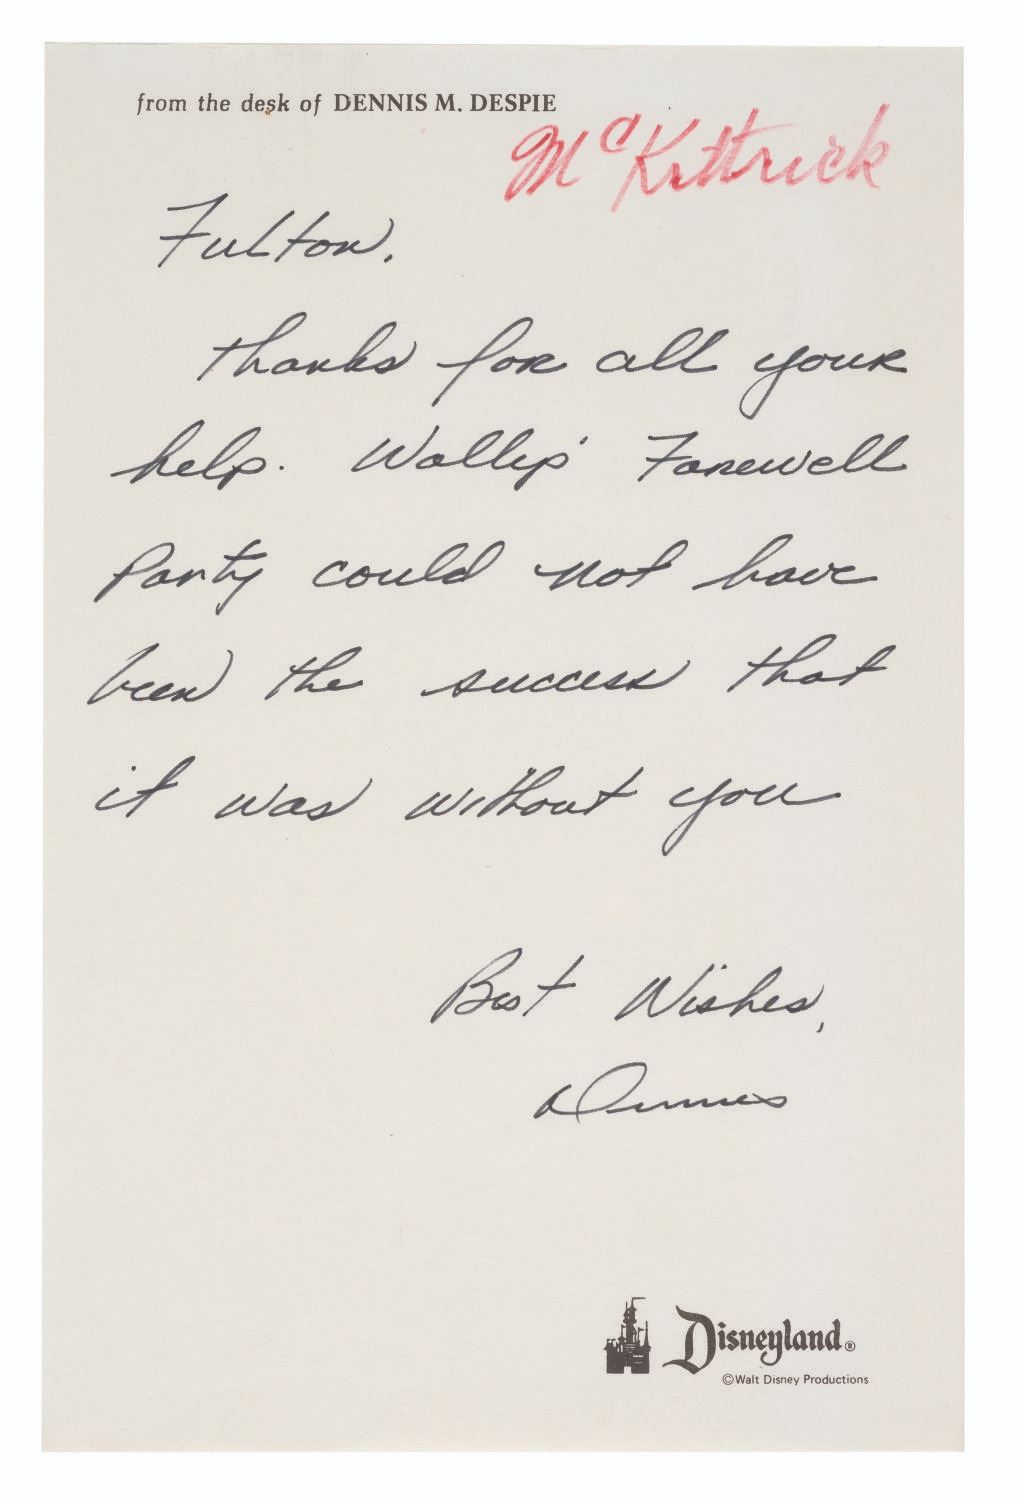 from the desk of DENNIS M. DESPIE
McKittrick
Fulton,
Thanks for all your
help. Wally's Farewell
Party could not have
been the success that
it was without you
Best Wishes,
Dennis
Disneyland®
©Walt Disney Productions